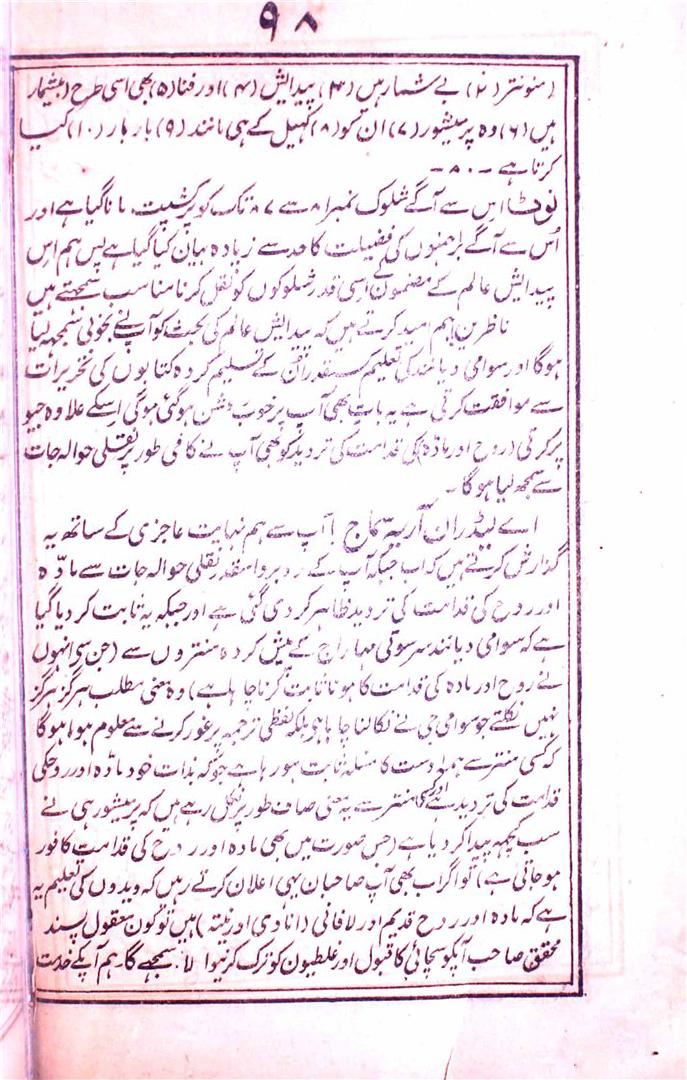 ۹۸
(منونتر (۲) بے شمار ہیں (۳) پیدایش (۴) اور فنا (۵) بھی اسی طرح (بیشمار
ہیں (۶) وہ پرمیشور (۷) ان کو (۸) کھیل کے ہی مانند (۹) بار بار (۱۰) کیا
کرتا ہے ۔ ۸۰۔
نوٹ! اس سے آگے شلوک نمبر ۸۱ سے ۸۷ تک کو پرکشپت مانا گیا ہے اور
اُس سے آگے برہمنوں کی فضیلت کا حد سے زیادہ بیان کیا گیا ہے پس ہم اس
پیدایش عالم کے مضمون کے اسی قدر شلوکوں کو نقل کرنا مناسب سمجھتے ہیں
ناظرین! ہم امید کرتے ہیں کہ پیدایش عالم کی بحث کو آپ نے بخوبی سمجھ لیا
ہوگا اور سوامی دیانند کی تعلیم کسقدر اُن کے تسلیم کردہ کتابوں کی تحریرات
سے موافقت کرتی ہے یہ بات بھی آپ پر خوب روشن ہو گئی ہوگی اسکے علاوہ جیو
پرکرتی (روح اور مادہ) کی قدامت کی تردید کو بھی آپ نے کافی طور پر نقلی حوالہ جات
سے سمجھ لیا ہوگا ۔
اے لیڈران آریہ سماج! آپ سے ہم نہایت عاجزی کے ساتھ یہ
گذارش کرتے ہیں کہ اب جبکہ آپ کے روبرو اسقدر نقلی حوالہ جات سے مادّہ
اور روح کی قدامت کی تردید ظاہر کر دی گئی ہے اور جبکہ یہ ثابت کر دیا گیا
ہے کہ سوامی دیانند سرسوتی مہاراج کے پیش کردہ منتروں سے (جن سے انہوں
نے روح اور مادہ کی قدامت کا ہونا ثابت کرنا چاہا ہے) وہ معنی مطلب ہرگز ہرگز
نہیں نکلتے جو سوامی جی نے نکالنا چاہا ہے بلکہ لفظی ترجمہ پر غور کرنے سے معلوم ہوا ہوگا
کہ کسی منتر سے ہمہ اوست کا مسئلہ ثابت ہو رہا ہے جو کہ بذات خود مادّہ اور روح کی
قدامت کی تردید ہے اور کسی منتر سے یہ معنی صاف طور پر نکل رہے ہیں کہ پرمیشور ہی نے
سب کچھ پیدا کر دیا ہے (جس صورت میں بھی مادہ اور روح کی قدامت کافور
ہو جاتی ہے) تو اگر اب بھی آپ صاحبان یہی اعلان کرتے رہیں کہ ویدوں کی تعلیم یہ
ہے کہ مادہ اور روح قدیم اور لافانی (انادی اور نیتہ) ہیں تو کون معقول پسند
محقق صاحب آپکو سچائی کا قبول اور غلطیوں کو ترک کرنیوالا سمجھے گا۔ ہم آپکے خدمت